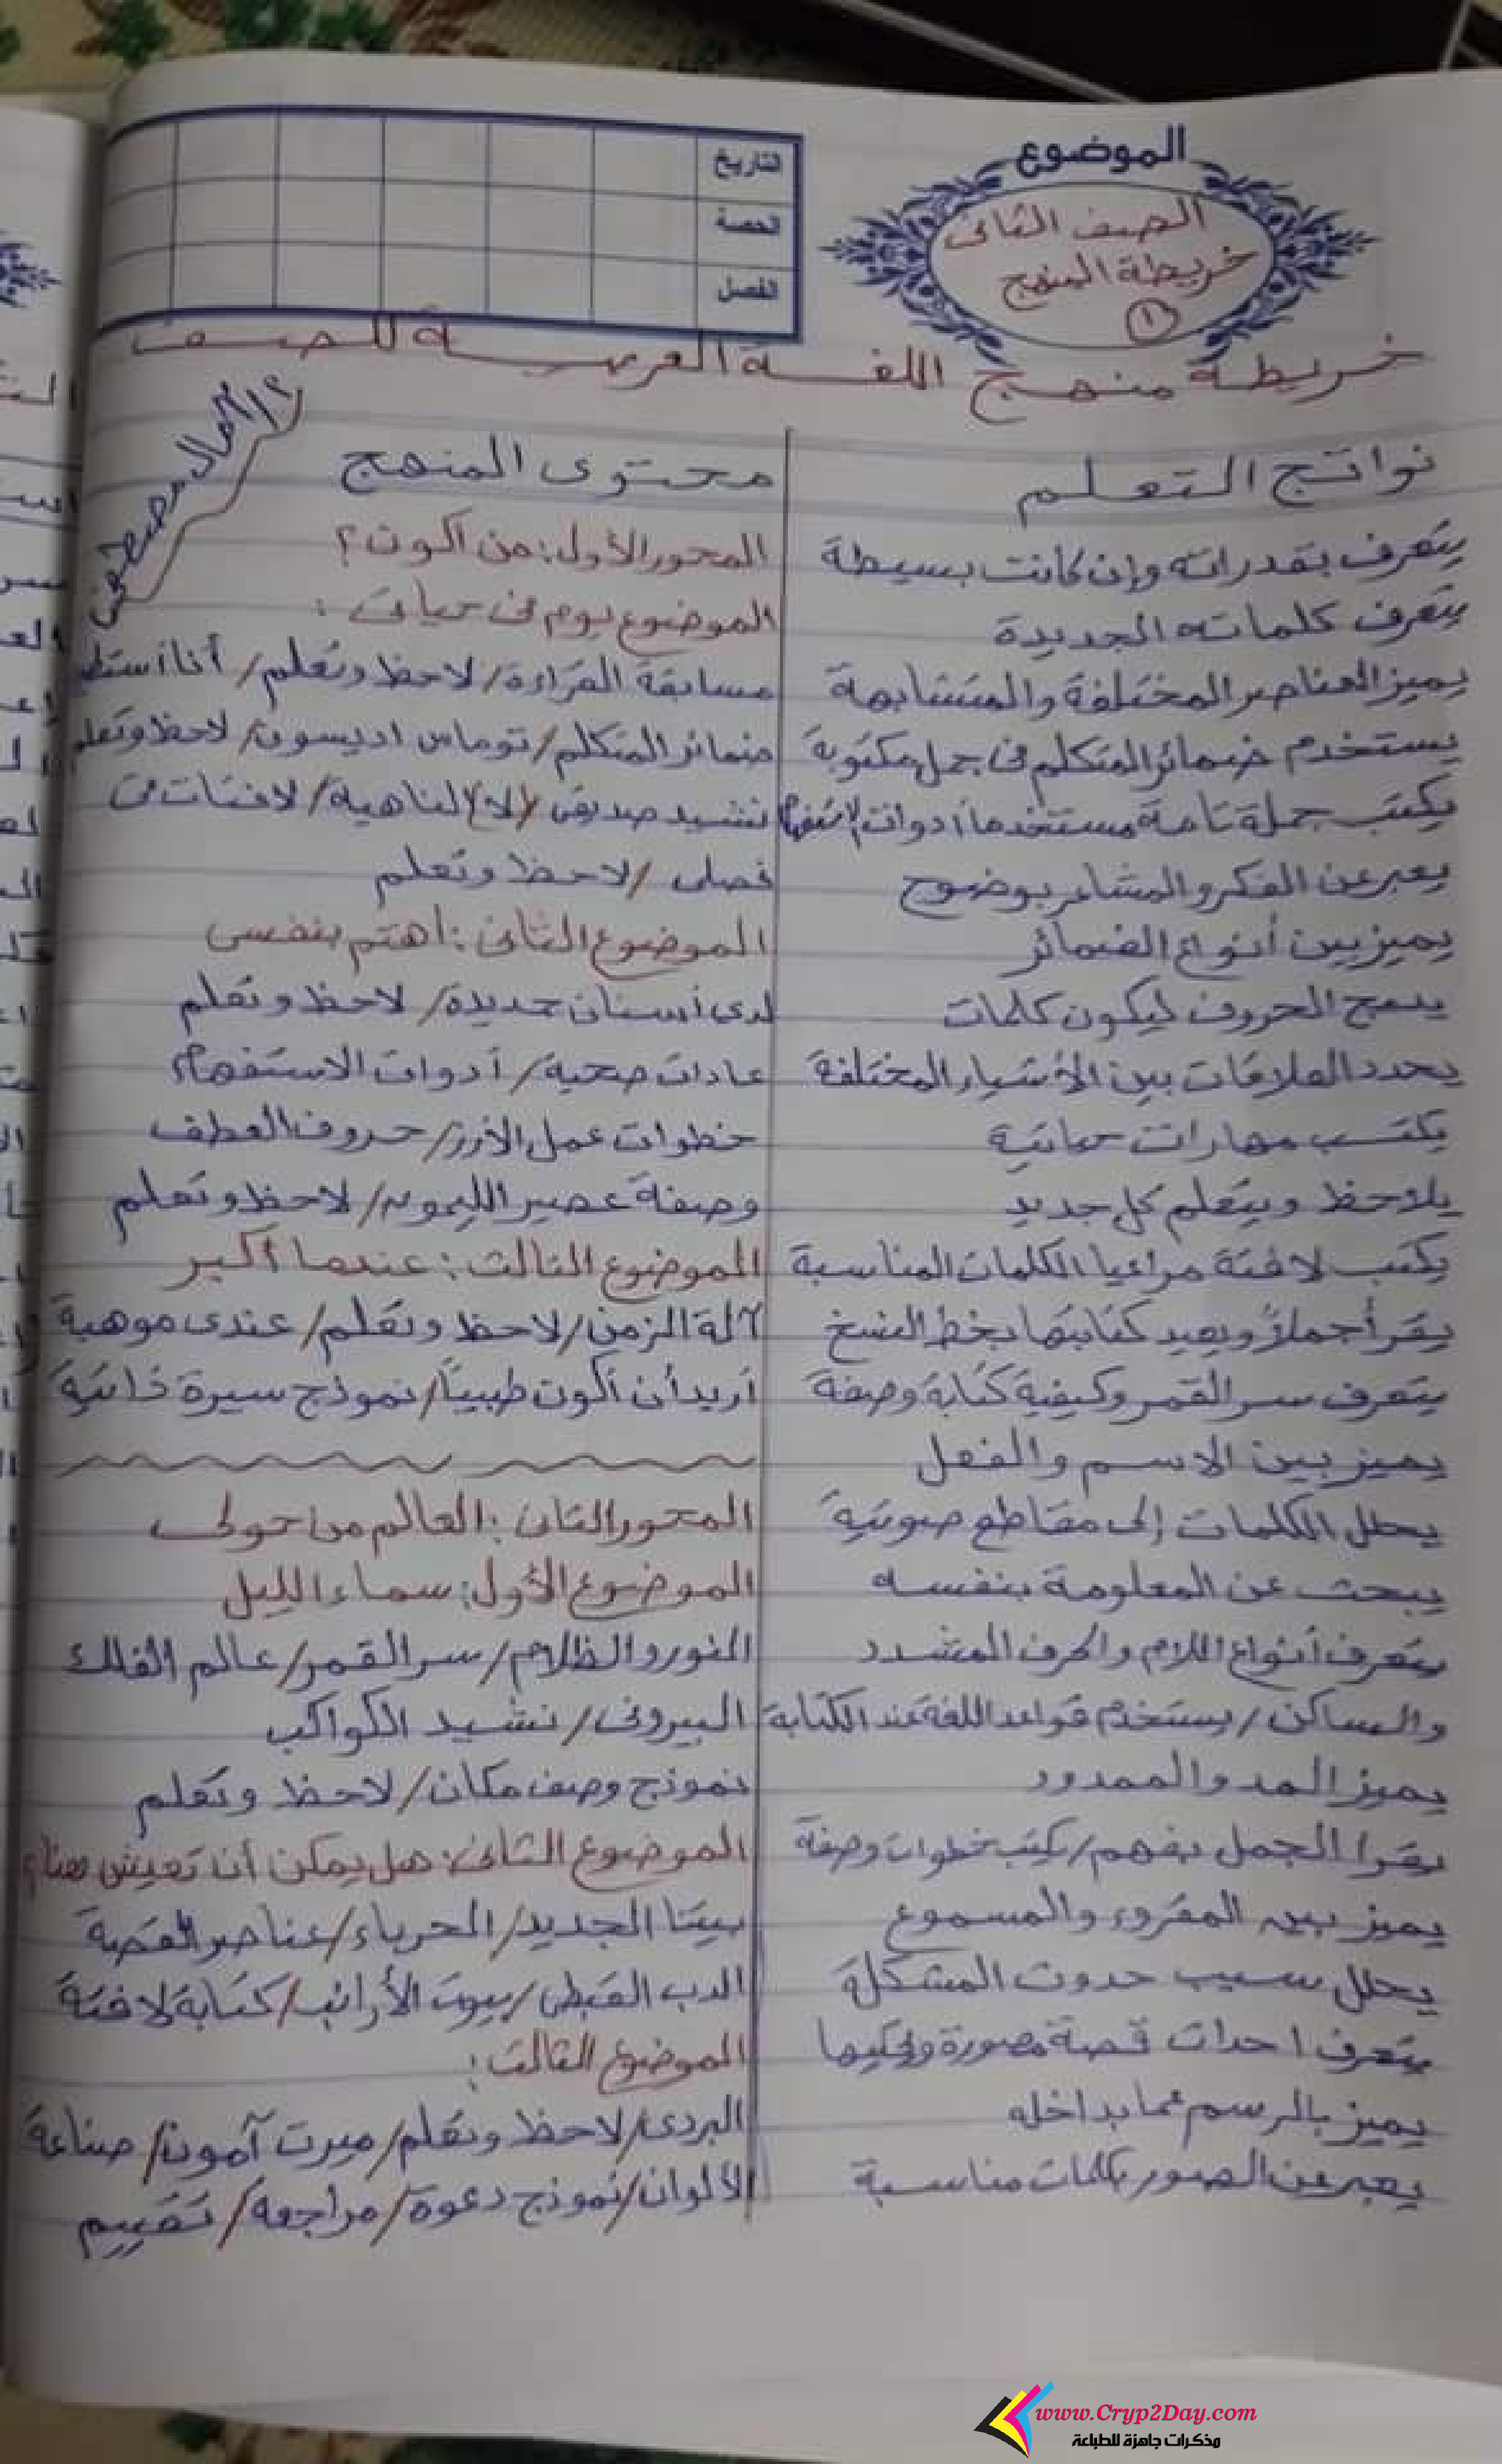 الموضوع
الصف الثانى
خريطة المنهج
١
التاريخ
الحصة
الفصل
خريطة منهج اللغة العربية للصف
أ/آمال مصطفى
نواتج التعلم
يتعرف بقدراته وإن كانت بسيطة
يتعرف كلماته الجديدة
يميز العناصر المختلفة والمتشابهة
يستخدم ضمائر المتكلم فى جمل مكتوبة
يكتب جملة تامة مستخدماً أدوات الاستفهام
يعبر عن الفكر والمشاعر بوضوح
يميز بين أنواع الضمائر
يدمج الحروف ليكون كلمات
يحدد العلاقات بين الأشياء المختلفة
يكتسب مهارات حياتية
يلاحظ ويتعلم كل جديد
يكتب لافتة مراعيا الكلمات المناسبة
يقرأ جملاً ويعيد كتابتها بخط النسخ
يتعرف سر القمر وكيفية كتابة وصفة
يميز بين الاسم والفعل
يحلل الكلمات إلى مقاطع صوتية
يبحث عن المعلومة بنفسه
يتعرف أنواع اللام والحرف المشدد
والساكن / يستخدم قواعد اللغة عند الكتابة
يميز المد والممدود
يقرا الجمل بفهم / يكتب خطوات وصفة
يميز بين المقروء والمسموع
يحلل سبب حدوث المشكلة
يتعرف احداث قصة مصورة ويحكيها
يميز بالرسم عما بداخله
يعبر عن الصور بكلمات مناسبة
محتوى المنهج
المحور الأول: من أكون؟
الموضوع يوم فى حياتى :
مسابقة القراءة / لاحظ وتعلم / أنا أستطيع
ضمائر المتكلم / توماس اديسون / لاحظ وتعلم
نشيد صديقى / (لا) الناهية / لافتات فى
فصلى / لاحظ وتعلم
الموضوع الثانى : اهتم بنفسى
لدى أسنان جديدة / لاحظ وتعلم
عادات صحية / أدوات الاستفهام
خطوات عمل الأرز / حروف العطف
وصفة عصير الليمون / لاحظ وتعلم
الموضوع الثالث : عندما أكبر
آلة الزمن / لاحظ وتعلم / عندى موهبة
أريد أن أكون طبيباً / نموذج سيرة ذاتية
المحور الثانى : العالم من حولى
الموضوع الأول : سماء الليل
النور والظلام / سر القمر / عالم الفلك
البيرونى / نشيد الكواكب
نموذج وصف مكان / لاحظ وتعلم
الموضوع الثانى : هل يمكن أن تعيش هنا؟
بيتنا الجديد / الحرباء / عناصر القصة
الدب القطبى / بيوت الأرانب / كتابة لافتة
الموضوع الثالث :
البردى / لاحظ وتعلم / ميرت آمون / صناعة
الألوان / نموذج دعوة / مراجعة / تقييم
www.Cryp2Day.com
مذكرات جاهزة للطباعة